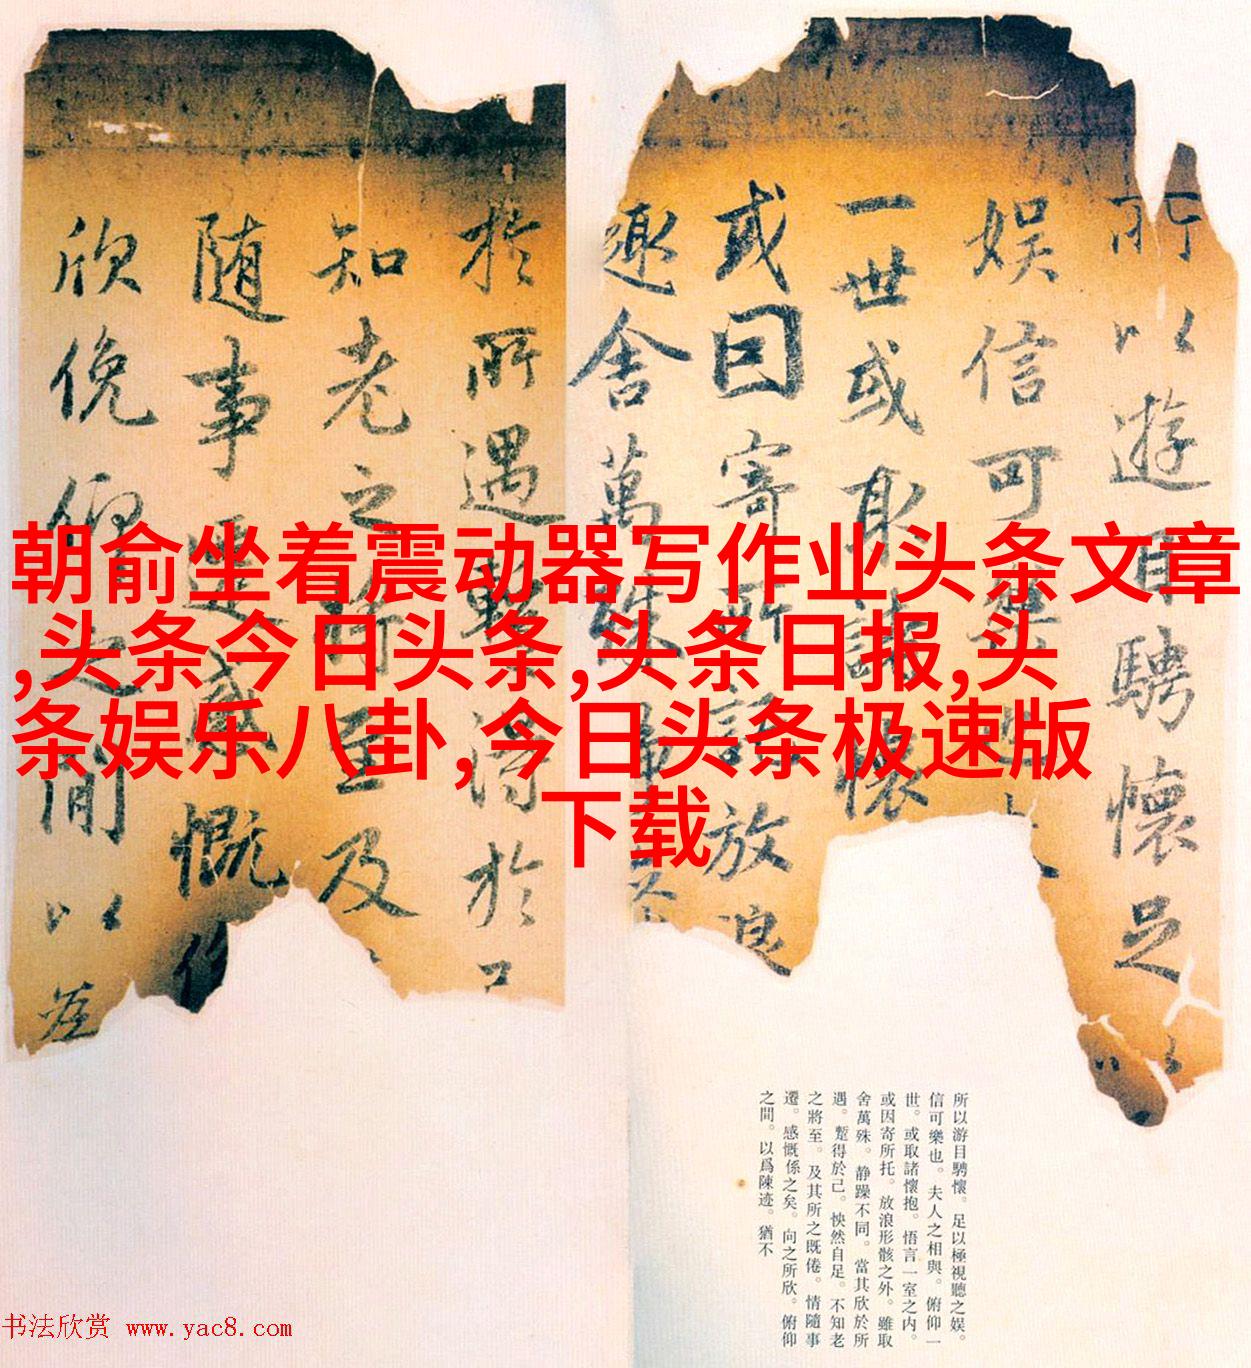 所以遊目騁懷足
娱信可
一世或取諸懷
或因寄所託放浪
趣舍萬殊
於所遇暫得於
知老之將至及
随事遷感慨係
欣俛仰之間以為
朝俞坐着震动器写作业头条文章
,头条今日头条,头条日报,头
条娱乐八卦,今日头条极速版
下载
所以游目騁懷。足以極視聽之娱。
信可樂也。夫人之相與。俯仰一
世。或取諸懷抱。悟言一室之内。
或因寄所托。放浪形骸之外。雖取
舍萬殊。静躁不同。當其欣於所
遇。蹔得於己。怏然自足。不知老
之將至。及其所之既倦。情隨事
遷。感慨係之矣。向之所欣。俯仰
之間。以爲陳迹。猶不
书法欣赏 www.yac8.com